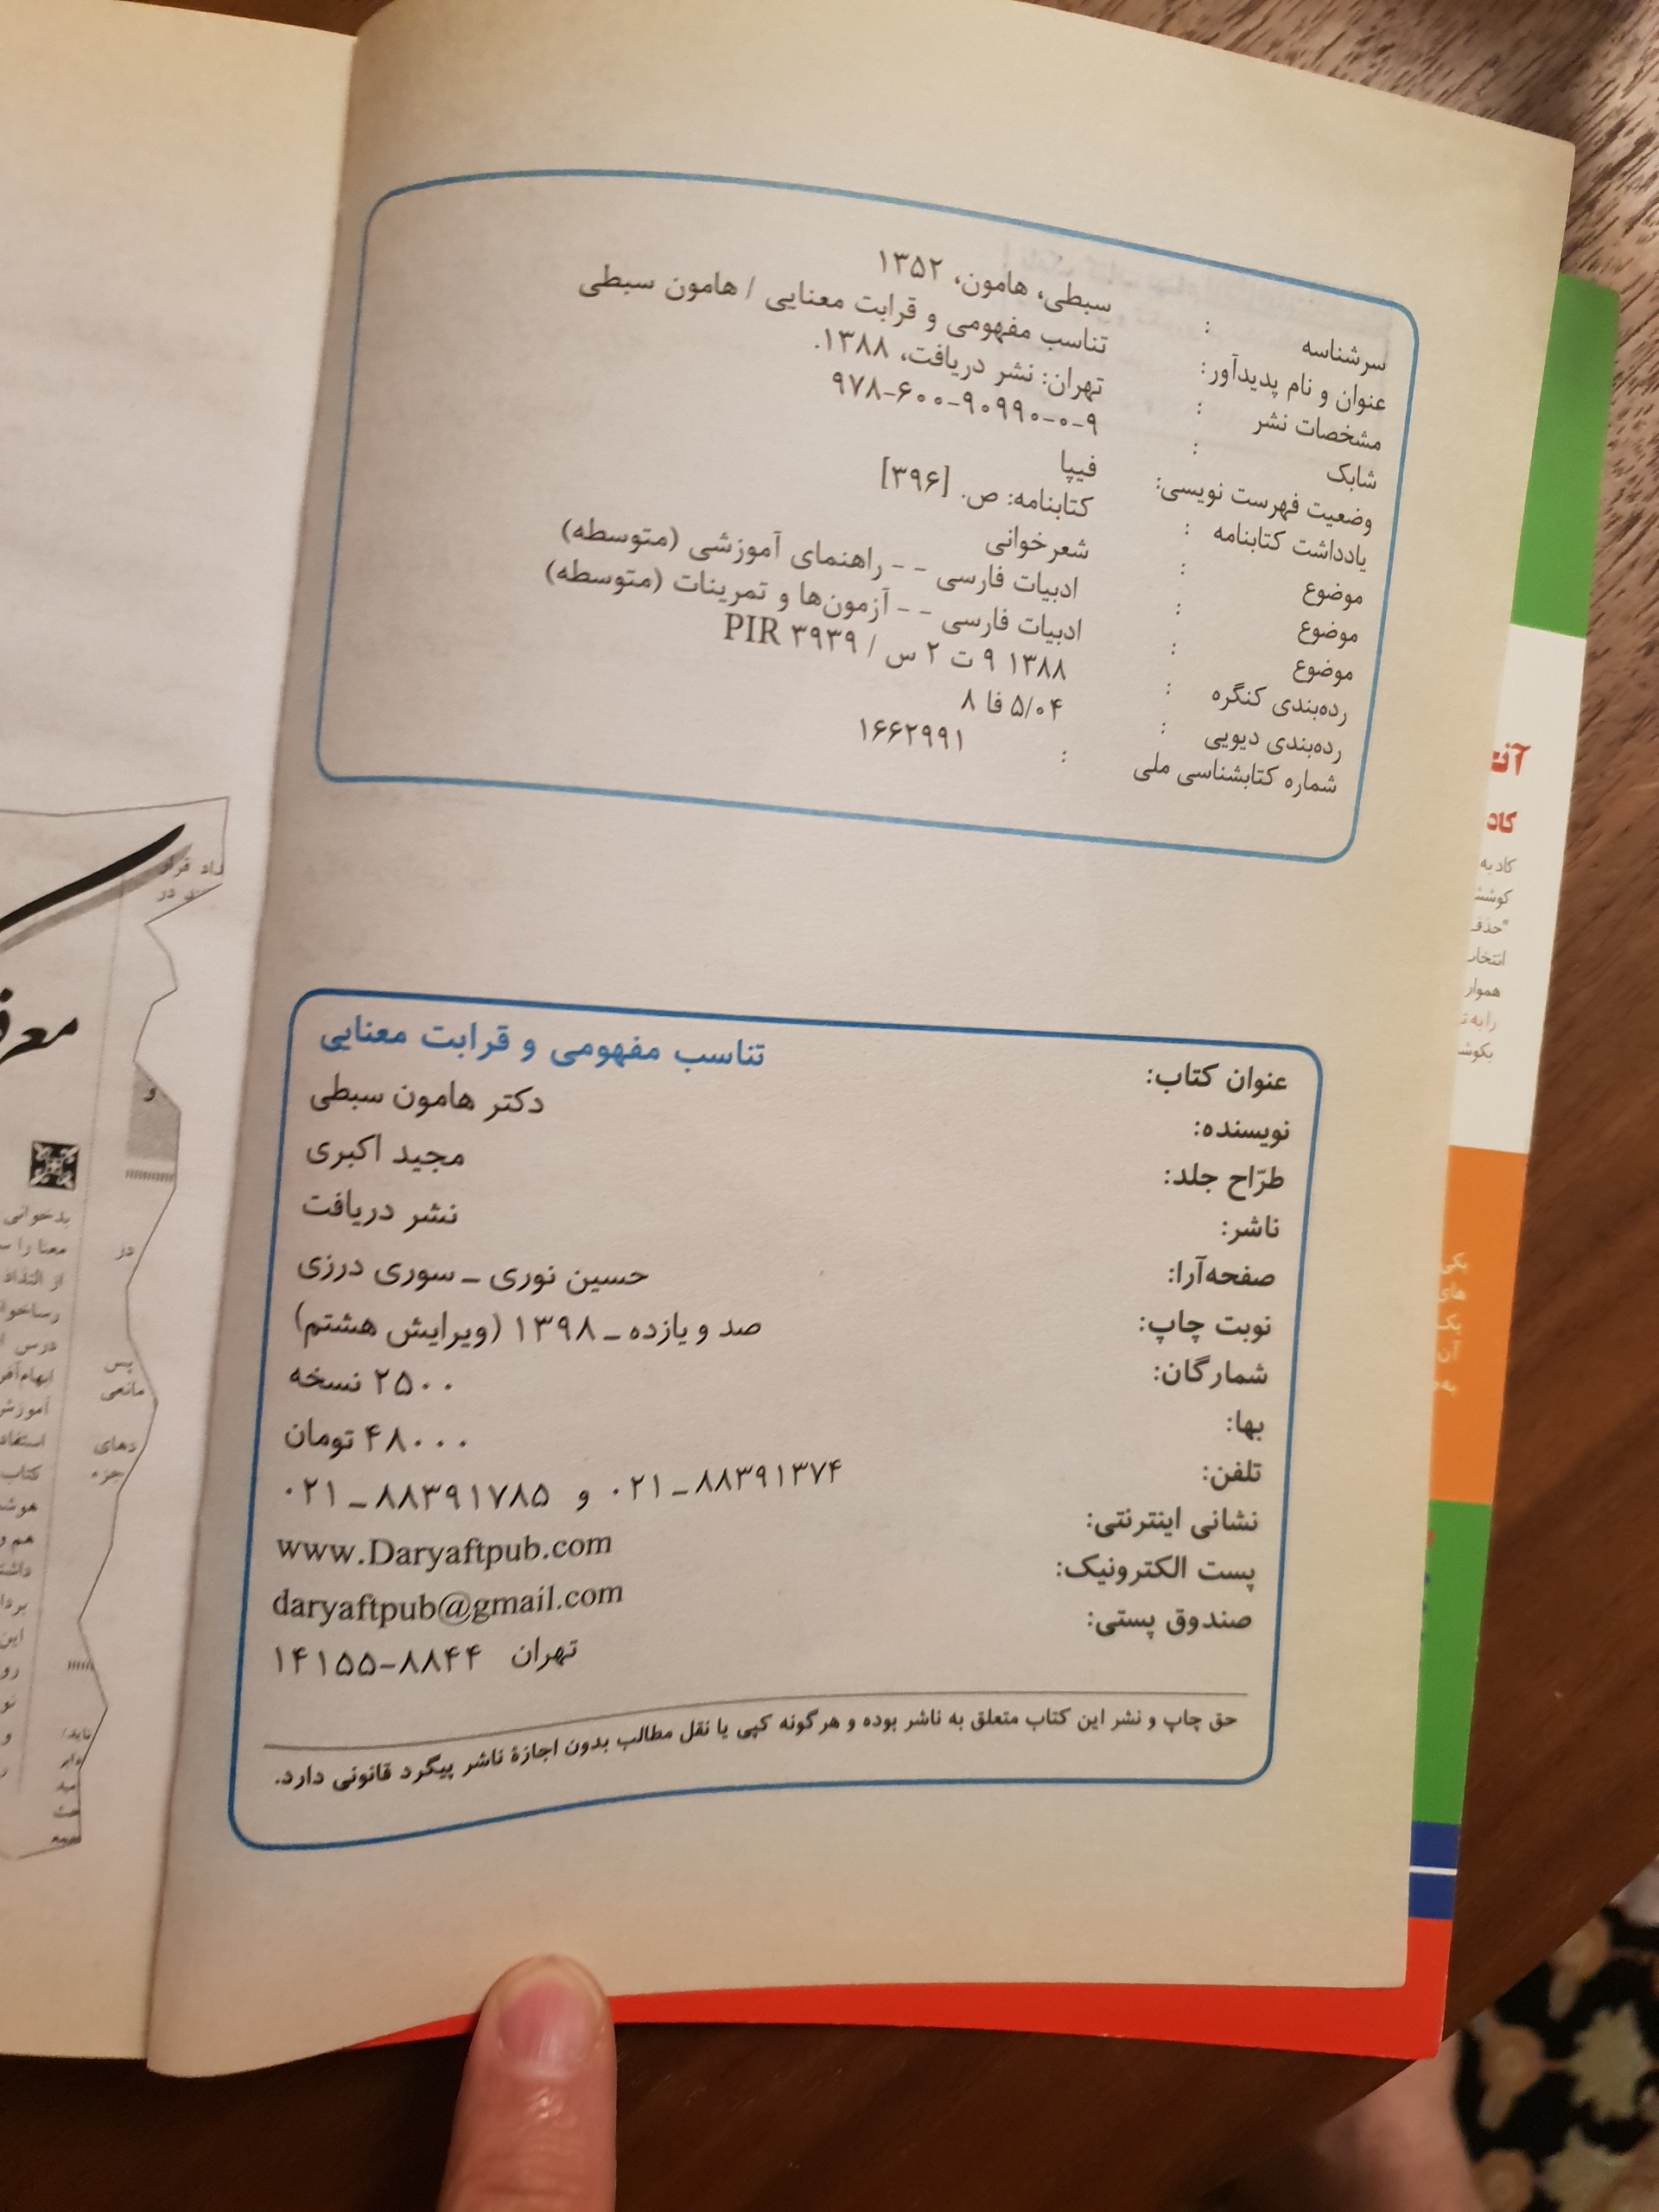 سرشناسه : سبطی، هامون، ۱۳۵۲
عنوان و نام پدیدآور: تناسب مفهومی و قرابت معنایی / هامون سبطی
مشخصات نشر : تهران: نشر دریافت، ۱۳۸۸.
شابک : ۹۷۸-۶۰۰-۹۰۹۹۰-۰-۹
وضعیت فهرست نویسی: فیپا
یادداشت کتابنامه : کتابنامه: ص. [۳۹۶]
موضوع : شعرخوانی
موضوع : ادبیات فارسی -- راهنمای آموزشی (متوسطه)
موضوع : ادبیات فارسی -- آزمون‌ها و تمرینات (متوسطه)
رده‌بندی کنگره : ۱۳۸۸ ۹ ت ۲ س / PIR ۳۹۳۹
رده‌بندی دیویی : ۵/۰۴ فا ۸
شماره کتابشناسی ملی : ۱۶۶۲۹۹۱
عنوان کتاب: تناسب مفهومی و قرابت معنایی
نویسنده: دکتر هامون سبطی
طرّاح جلد: مجید اکبری
ناشر: نشر دریافت
صفحه‌آرا: حسین نوری ـ سوری درزی
نوبت چاپ: صد و یازده ـ ۱۳۹۸ (ویرایش هشتم)
شمارگان: ۲۵۰۰ نسخه
بها: ۴۸۰۰۰ تومان
تلفن: ۸۸۳۹۱۳۷۴ـ۰۲۱ و ۸۸۳۹۱۷۸۵ـ۰۲۱
نشانی اینترنتی: www.Daryaftpub.com
پست الکترونیک: daryaftpub@gmail.com
صندوق پستی: تهران ۸۸۴۴-۱۴۱۵۵
حق چاپ و نشر این کتاب متعلق به ناشر بوده و هرگونه کپی یا نقل مطالب بدون اجازهٔ ناشر پیگرد قانونی دارد.
کاد به
"حذف
بدخوانی
معنا را
در
از التذاذ
درس
پس
مانعی
استفاد
کتاب
این